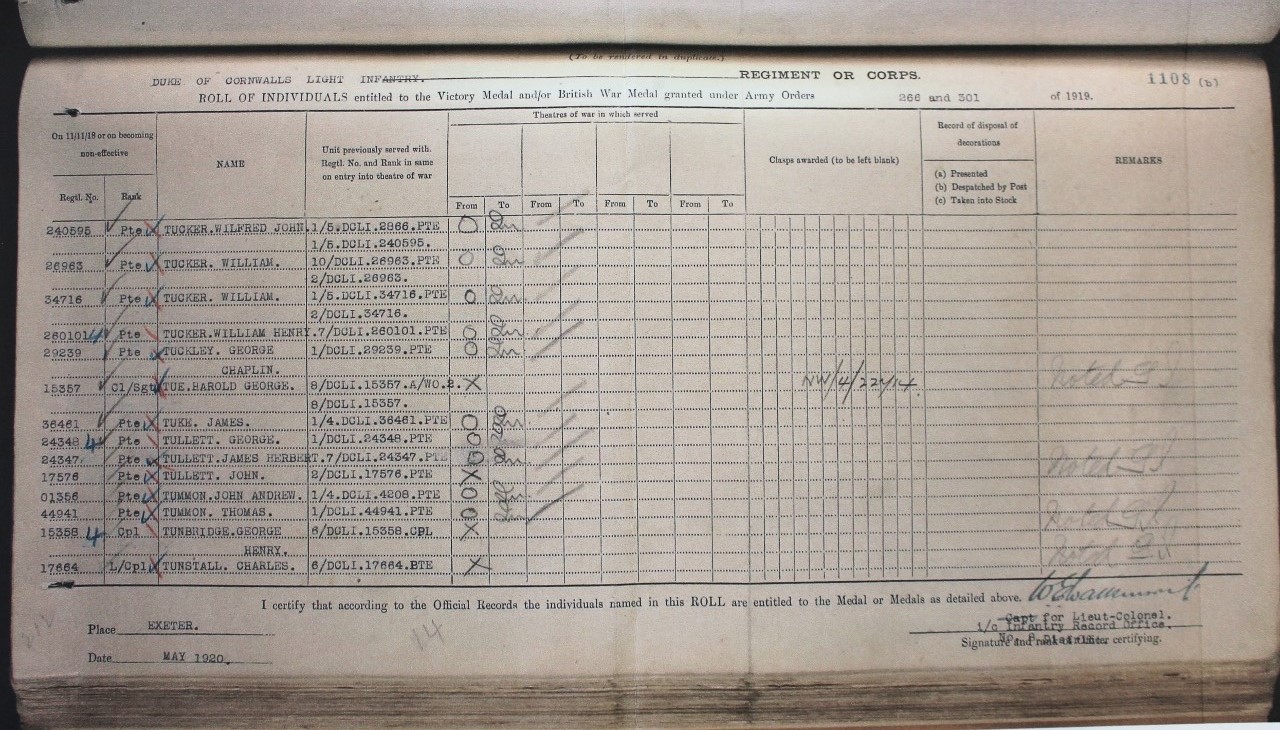 (To be rendered in duplicate.)
DUKE OF CORNWALLS LIGHT INFANTRY. REGIMENT OR CORPS. 1108 (b)
ROLL OF INDIVIDUALS entitled to the Victory Medal and/or British War Medal granted under Army Orders 266 and 301 of 1919.
On 11/11/18 or on becoming non-effective
Regtl. No. Rank
NAME
Unit previously served with. Regtl. No. and Rank in same on entry into theatre of war
Theatres of war in which served
From To From To From To From To
Clasps awarded (to be left blank)
Record of disposal of decorations
(a) Presented
(b) Despatched by Post
(c) Taken into Stock
REMARKS
240595 Pte TUCKER.WILFRED JOHN. 1/5.DCLI.2866.PTE
1/5.DCLI.240595.
26963 Pte TUCKER. WILLIAM. 10/DCLI.26963.PTE
2/DCLI.26963.
34716 Pte TUCKER. WILLIAM. 1/5.DCLI.34716.PTE
2/DCLI.34716.
260101 4 Pte TUCKER.WILLIAM HENRY. 7/DCLI.260101.PTE
29239 Pte TUCKLEY. GEORGE 1/DCLI.29239.PTE
CHAPLIN.
15357 Cl/Sgt TUE.HAROLD GEORGE. 8/DCLI.15357.A/WO.2. X NW/4/22714 Noted
8/DCLI.15357.
36461 Pte TUKE. JAMES. 1/4.DCLI.36461.PTE
24348 4 Pte TULLETT. GEORGE. 1/DCLI.24348.PTE
24347 Pte TULLETT.JAMES HERBERT. 7/DCLI.24347.PTE
17576 Pte TULLETT. JOHN. 2/DCLI.17576.PTE X Noted
01356 Pte TUMMON.JOHN ANDREW. 1/4.DCLI.4208.PTE
44941 Pte TUMMON. THOMAS. 1/DCLI.44941.PTE
15358 4 Cpl TUNBRIDGE.GEORGE 6/DCLI.15358.CPL X Noted
HENRY.
17664 L/Cpl TUNSTALL. CHARLES. 6/DCLI.17664.PTE X Noted
I certify that according to the Official Records the individuals named in this ROLL are entitled to the Medal or Medals as detailed above.
Capt for Lieut-Colonel.
i/c Infantry Record Office.
Place EXETER.
14
Signature and rank of Officer certifying.
Date MAY 1920.